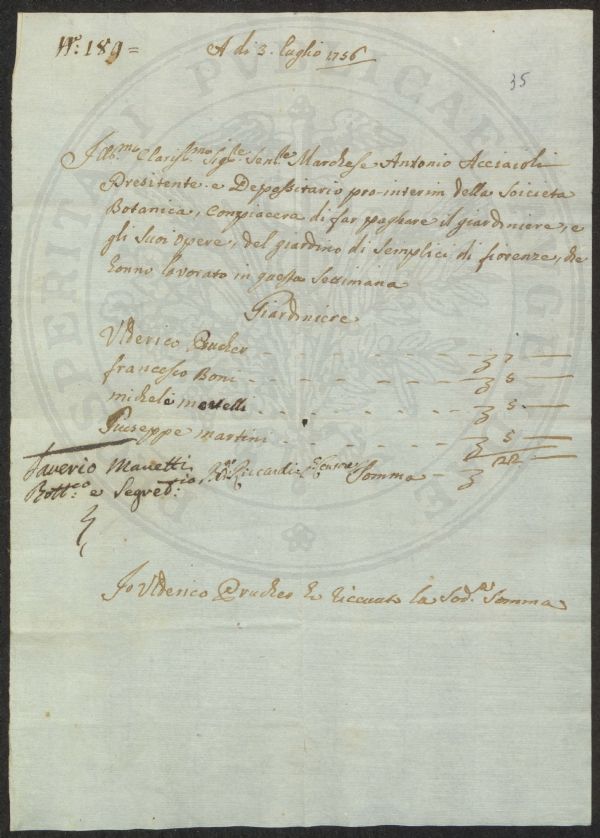 N.º 189 =
A di 3. luglio 1756
35
Ill.mo Claris.mo Sig.re Sen.re Marchese Antonio Acciaioli
Presitente e Depossitario pro-interim della Soicieta
Botanica, Conpiacera di far paghare il giardiniere, e
gli Suoi opere, del giardino di Semplici di fiorenze, che
honno lavorato in questa Settimana
Giardiniere
Ulderico Prucher - - - - - 7 —
francesco Boni - - - - - 5 —
michele martelli - - - - - 5 —
Giuseppe martini - - - - - 5 —
Saverio Manetti
Bott.co e Segret.rio Riccardi Somma - 22 —
Jo Ulderico Prucher ho riceuuto la Sod.a Somma
PROSPERITATI PUBLICAE AUGENDAE